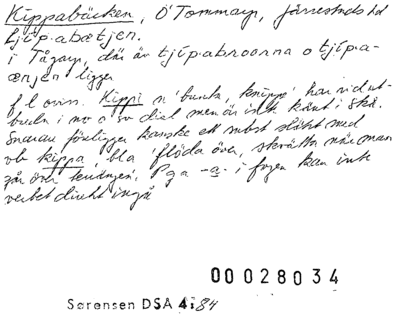 Kippabäcken, Ö Tommarp, Järrestads hd
tjip·abætjen.
i Tågarp, där är tjip·abroarna o tjip·a-
ænjen ligger
f l oviss. Kippi n 'bunt, knippe' har vid ut-
bredn i no o sv dial men är inte känt i Skå.
Snarare föreligger kanske ett subst släkt med
vb kippa, bl a 'flöda över, skvätta när man
går över
P g a -a- i fogen kan inte
verbet direkt ingå
00 028034
Sørensen DSA 4:84